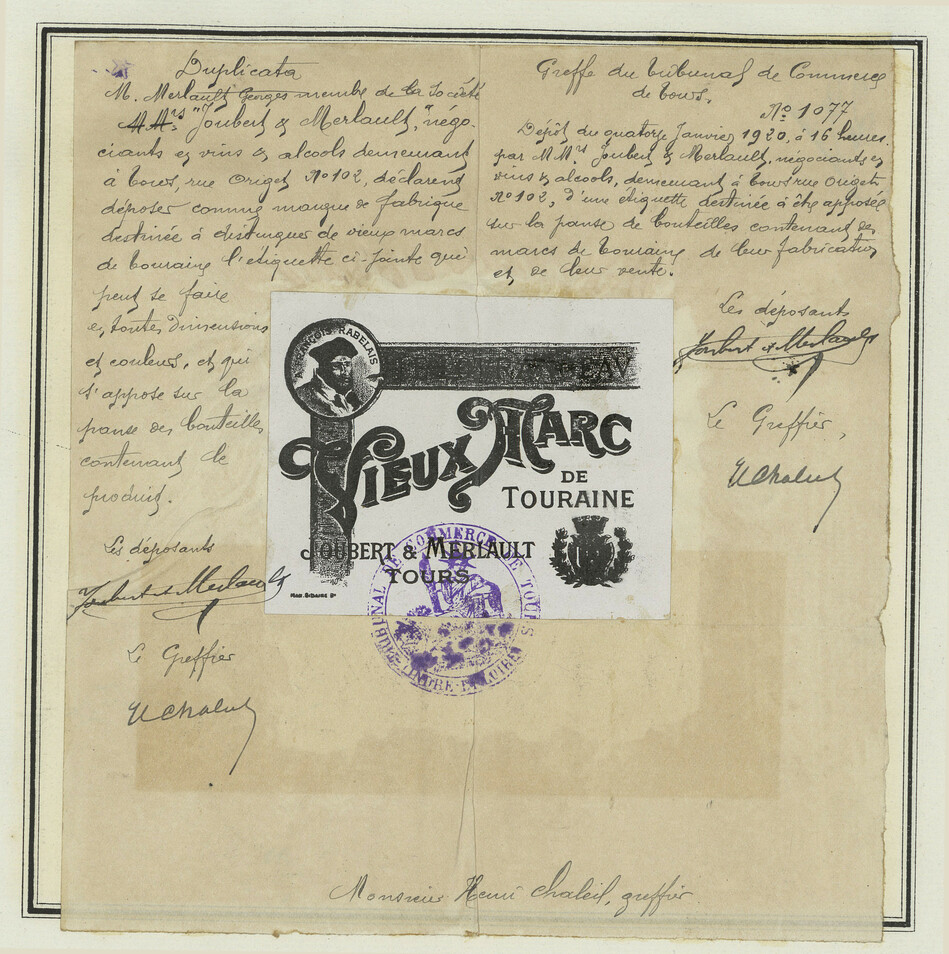 Duplicata
M. Merlault Georges membre de la Société
M.Mrs "Joubert & Merlault", négo-
ciants en vins & alcools demeurant
à Tours, rue Origet N° 102, déclarent
déposer comme marque de fabrique
destinée à distinguer de vieux marcs
de Touraine l'etiquette ci-jointe qui
peut se faire
en toutes dimensions
et couleurs, et qui
s'appose sur la
panse des bouteilles
contenant le
produit.
Les déposants
Joubert & Merlault
Le Greffier
Greffe du Tribunal de Commerce
de Tours.
N° 1077
Dépôt du quatorze Janvier 1920, à 16 heures.
par MMrs Joubert & Merlault, négociants en
vins & alcools, demeurant à Tours rue Origet
N° 102, d'une étiquette destinée à être apposée
sur la panse de bouteilles contenant des
marcs de Touraine de leur fabrication
et de leur vente.
Les déposants
Joubert & Merlault
Le Greffier,
FRANÇOIS RABELAIS
EAV
VIEUX MARC
DE
TOURAINE
JOUBERT & MERLAULT
TOURS
TRIBUNAL DE COMMERCE DE TOURS
INDRE-ET-LOIRE
Monsieur Henri Chaleil, greffier